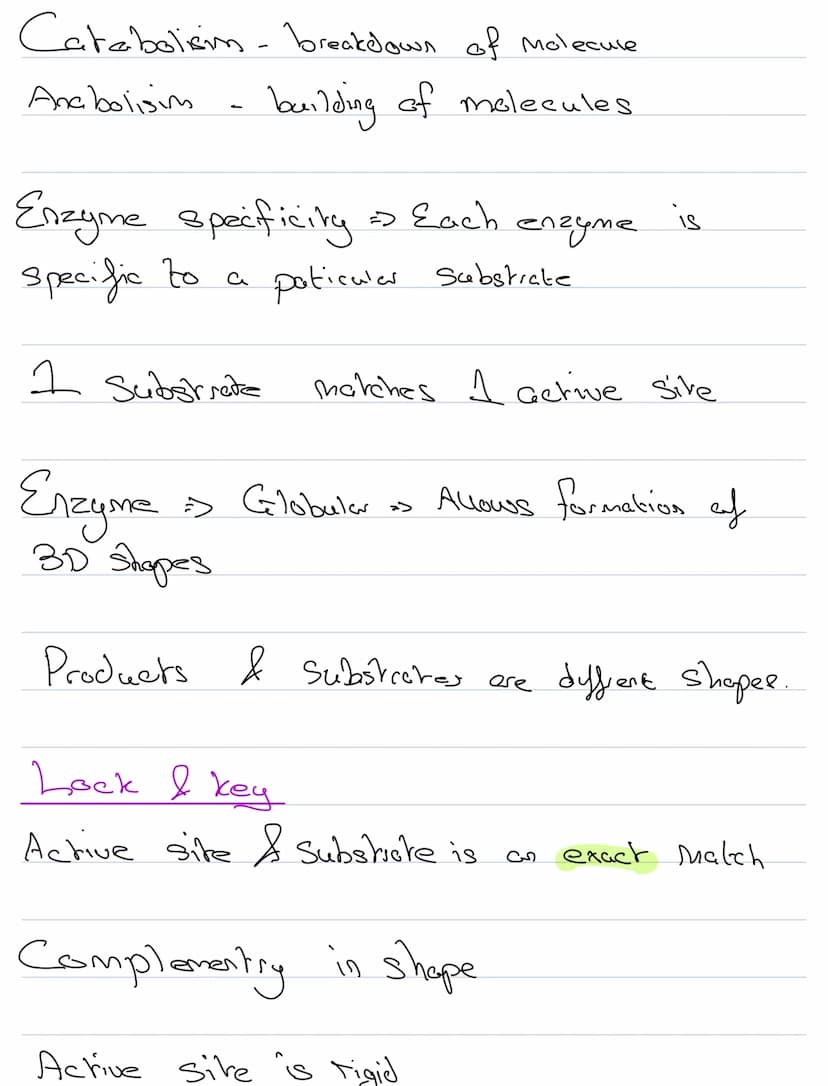 Catabolism - breakdown of molecule
Anabolism - building of molecules
Enzyme specificity => Each enzyme is
specific to a paticular substrate
1 substrate matches 1 active site
Enzyme => Globular => Allows formation of
3D shapes
Products & substrates are diffrent shapes.
Lock & key
Active site & substrate is an exact match
Complementry in shape
Active site is rigid